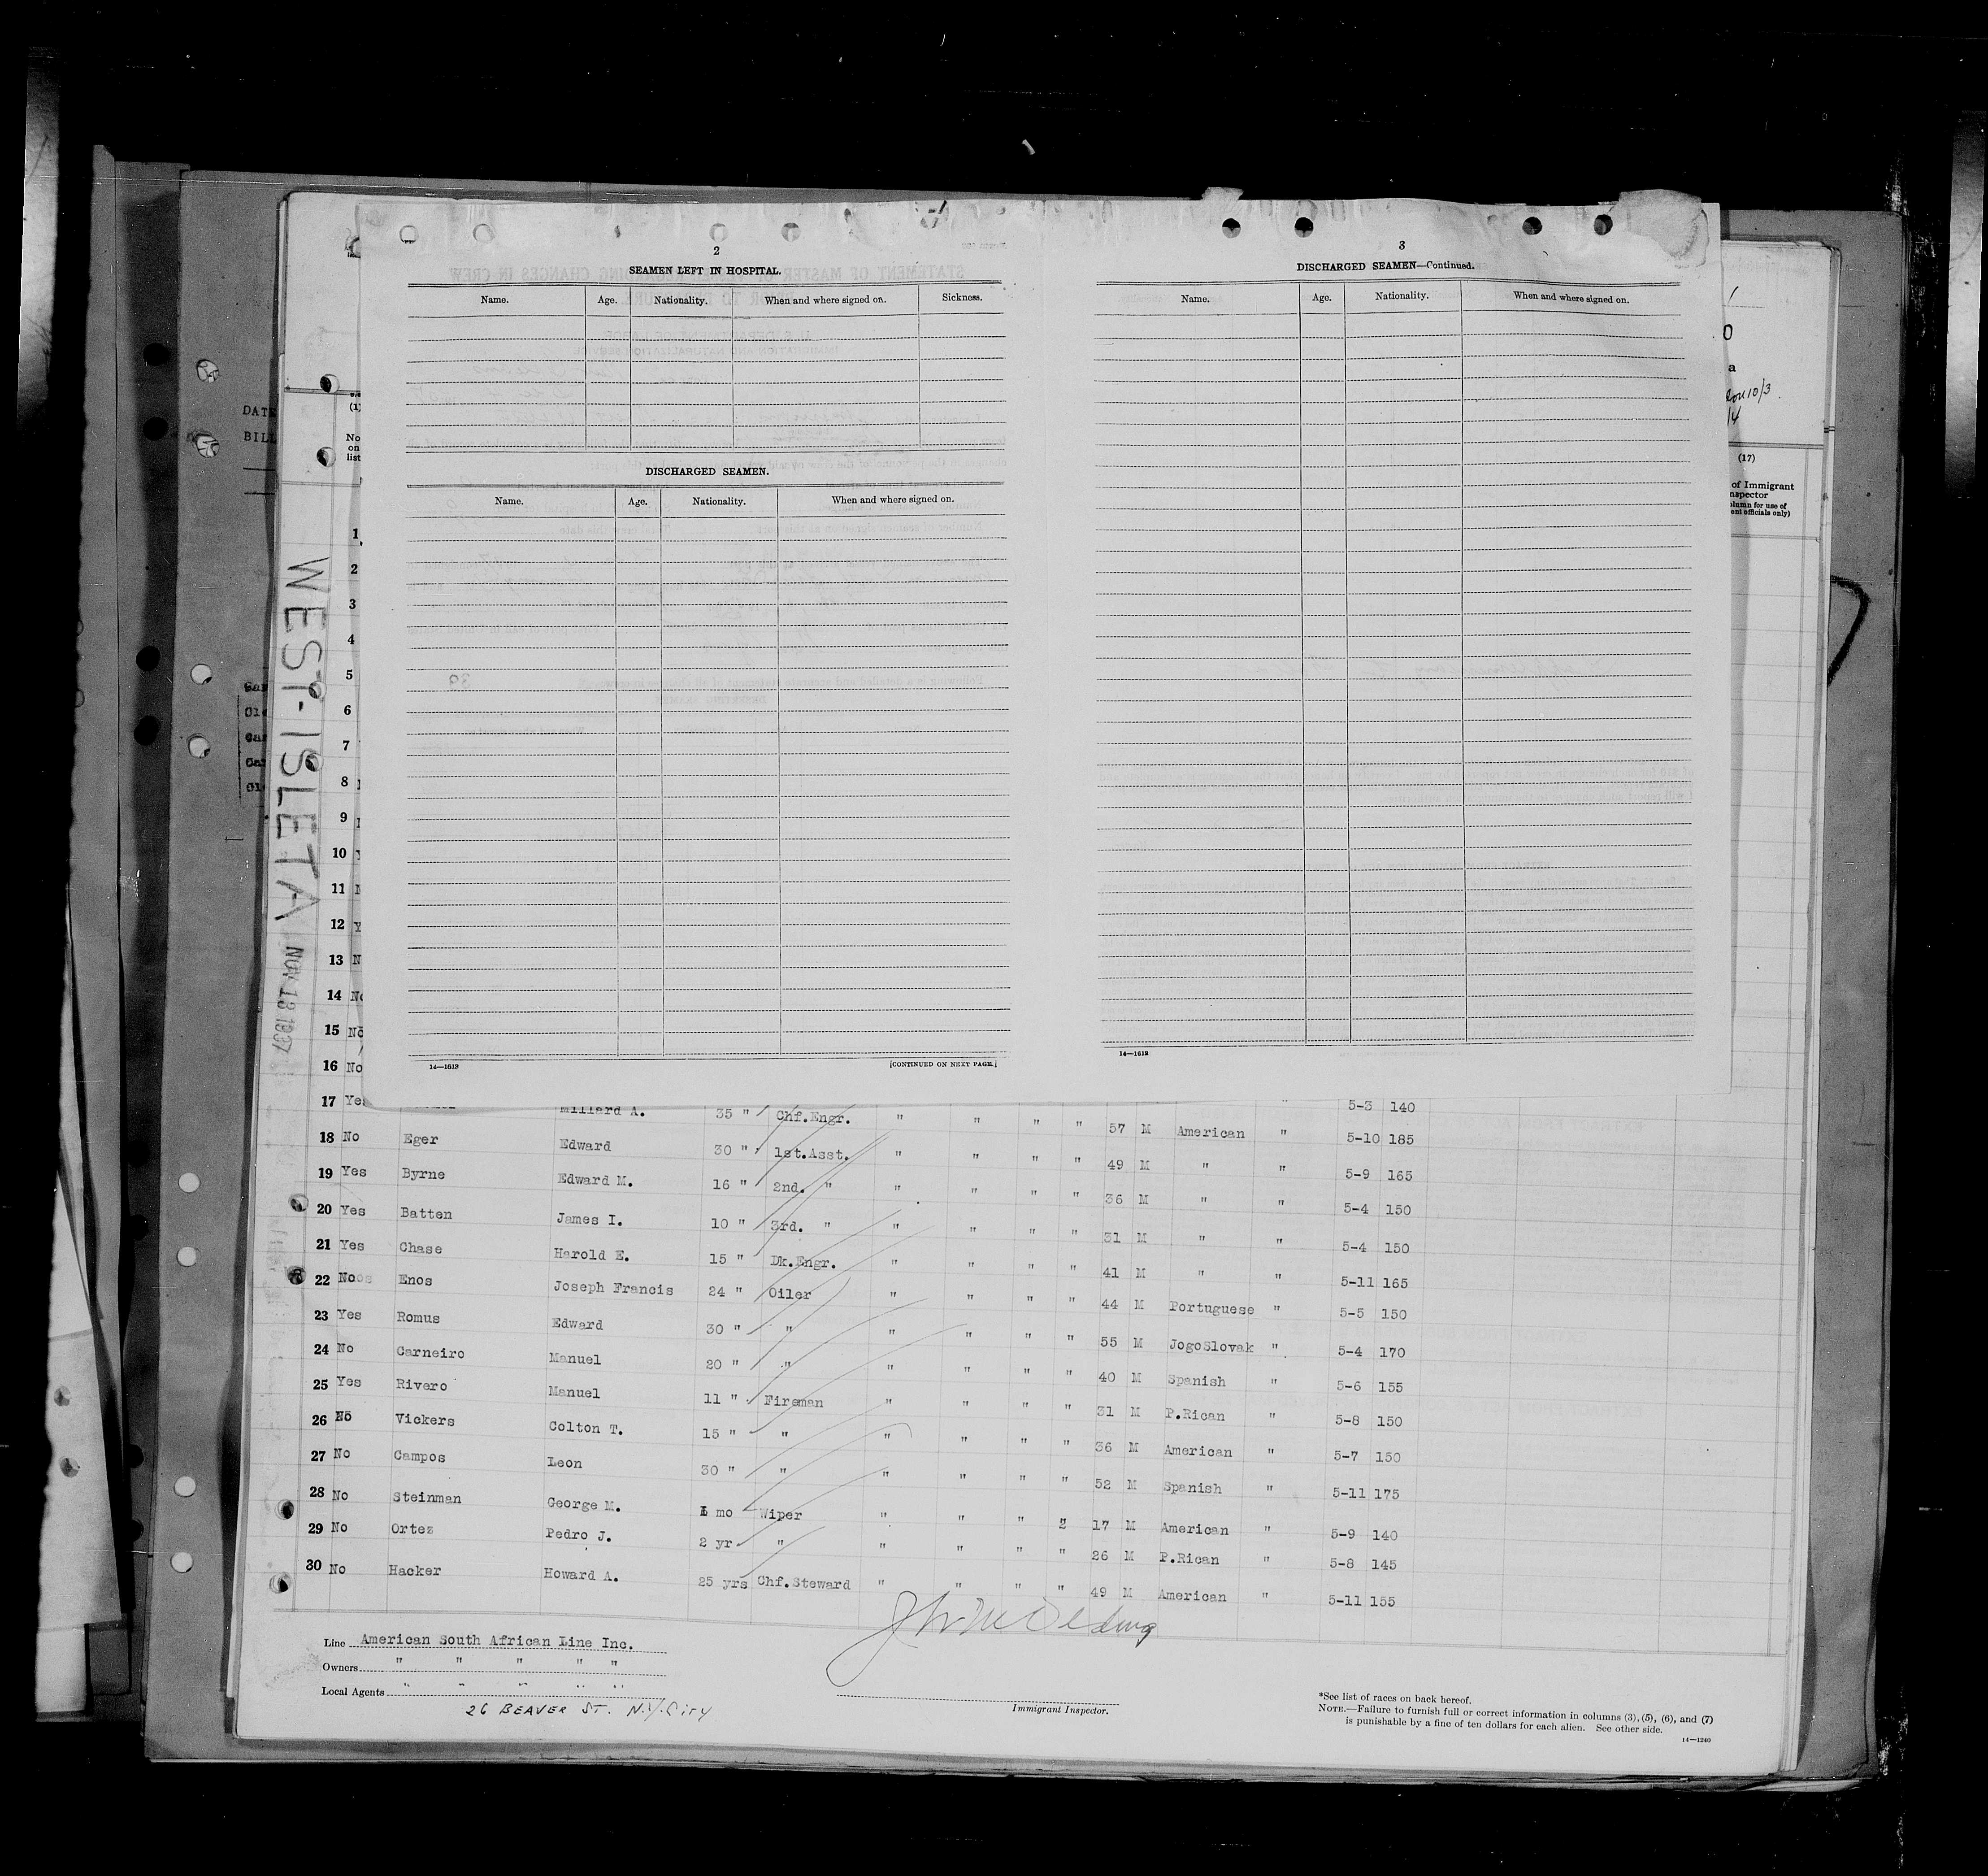 2
SEAMEN LEFT IN HOSPITAL.
Name. Age. Nationality. When and where signed on. Sickness.
DISCHARGED SEAMEN.
Name. Age. Nationality. When and where signed on.
14—1613
[CONTINUED ON NEXT PAGE.]
3
DISCHARGED SEAMEN—Continued.
Name. Age. Nationality. When and where signed on.
14—1613
DATE
BILL
WEST-ISLETA
NOV 13 1937
(1)
No
on
list
(17)
of Immigrant
nspector
olumn for use of
ent officials only)
1
2
3
4
5
6
7
8
9
10
11
12
13 N
14 No
15 No
16 No
17 Yes Millard A. 35 " Chf.Engr. " " " " 57 M American " 5-3 140
18 No Eger Edward 30 " 1st.Asst. " " " " 49 M " " 5-10 185
19 Yes Byrne Edward M. 16 " 2nd. " " " " " 36 M " " 5-9 165
20 Yes Batten James I. 10 " 3rd. " " " " 31 M " " 5-4 150
21 Yes Chase Harold E. 15 " Dk.Engr. " " " " 41 M " " 5-4 150
22 No Enos Joseph Francis 24 " Oiler " " " " 44 M Portuguese " 5-11 165
23 Yes Romus Edward 30 " " " " " " 55 M JogoSlovak " 5-5 150
24 No Carneiro Manuel 20 " " " " " " 40 M Spanish " 5-4 170
25 Yes Rivero Manuel 11 " Fireman " " " " 31 M P.Rican " 5-6 155
26 No Vickers Colton T. 15 " " " " " " 36 M American " 5-8 150
27 No Campos Leon 30 " " " " " " 52 M Spanish " 5-7 150
28 No Steinman George M. 1 mo Wiper " " " " 17 M American " 5-11 175
29 No Ortez Pedro J. 2 yr " " " " " 26 M P.Rican " 5-9 140
30 No Hacker Howard A. 25 yrs Chf.Steward " " " " 49 M American " 5-8 145
5-11 155
Line American South African Line Inc.
Owners " " " " "
Local Agents " " " " "
26 BEAVER ST. N.Y. City
Immigrant Inspector.
*See list of races on back hereof.
NOTE.—Failure to furnish full or correct information in columns (3), (5), (6), and (7)
is punishable by a fine of ten dollars for each alien. See other side.
14—1240